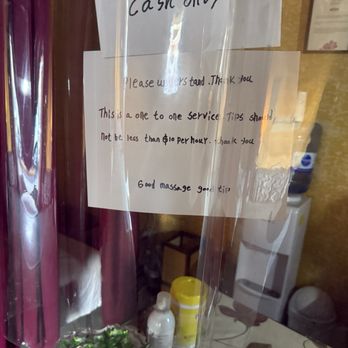 Cash only
Please understand. Thank you
This is a one to one service. Tips should
not be less than $10 per hour. thank you
Good massage good tip